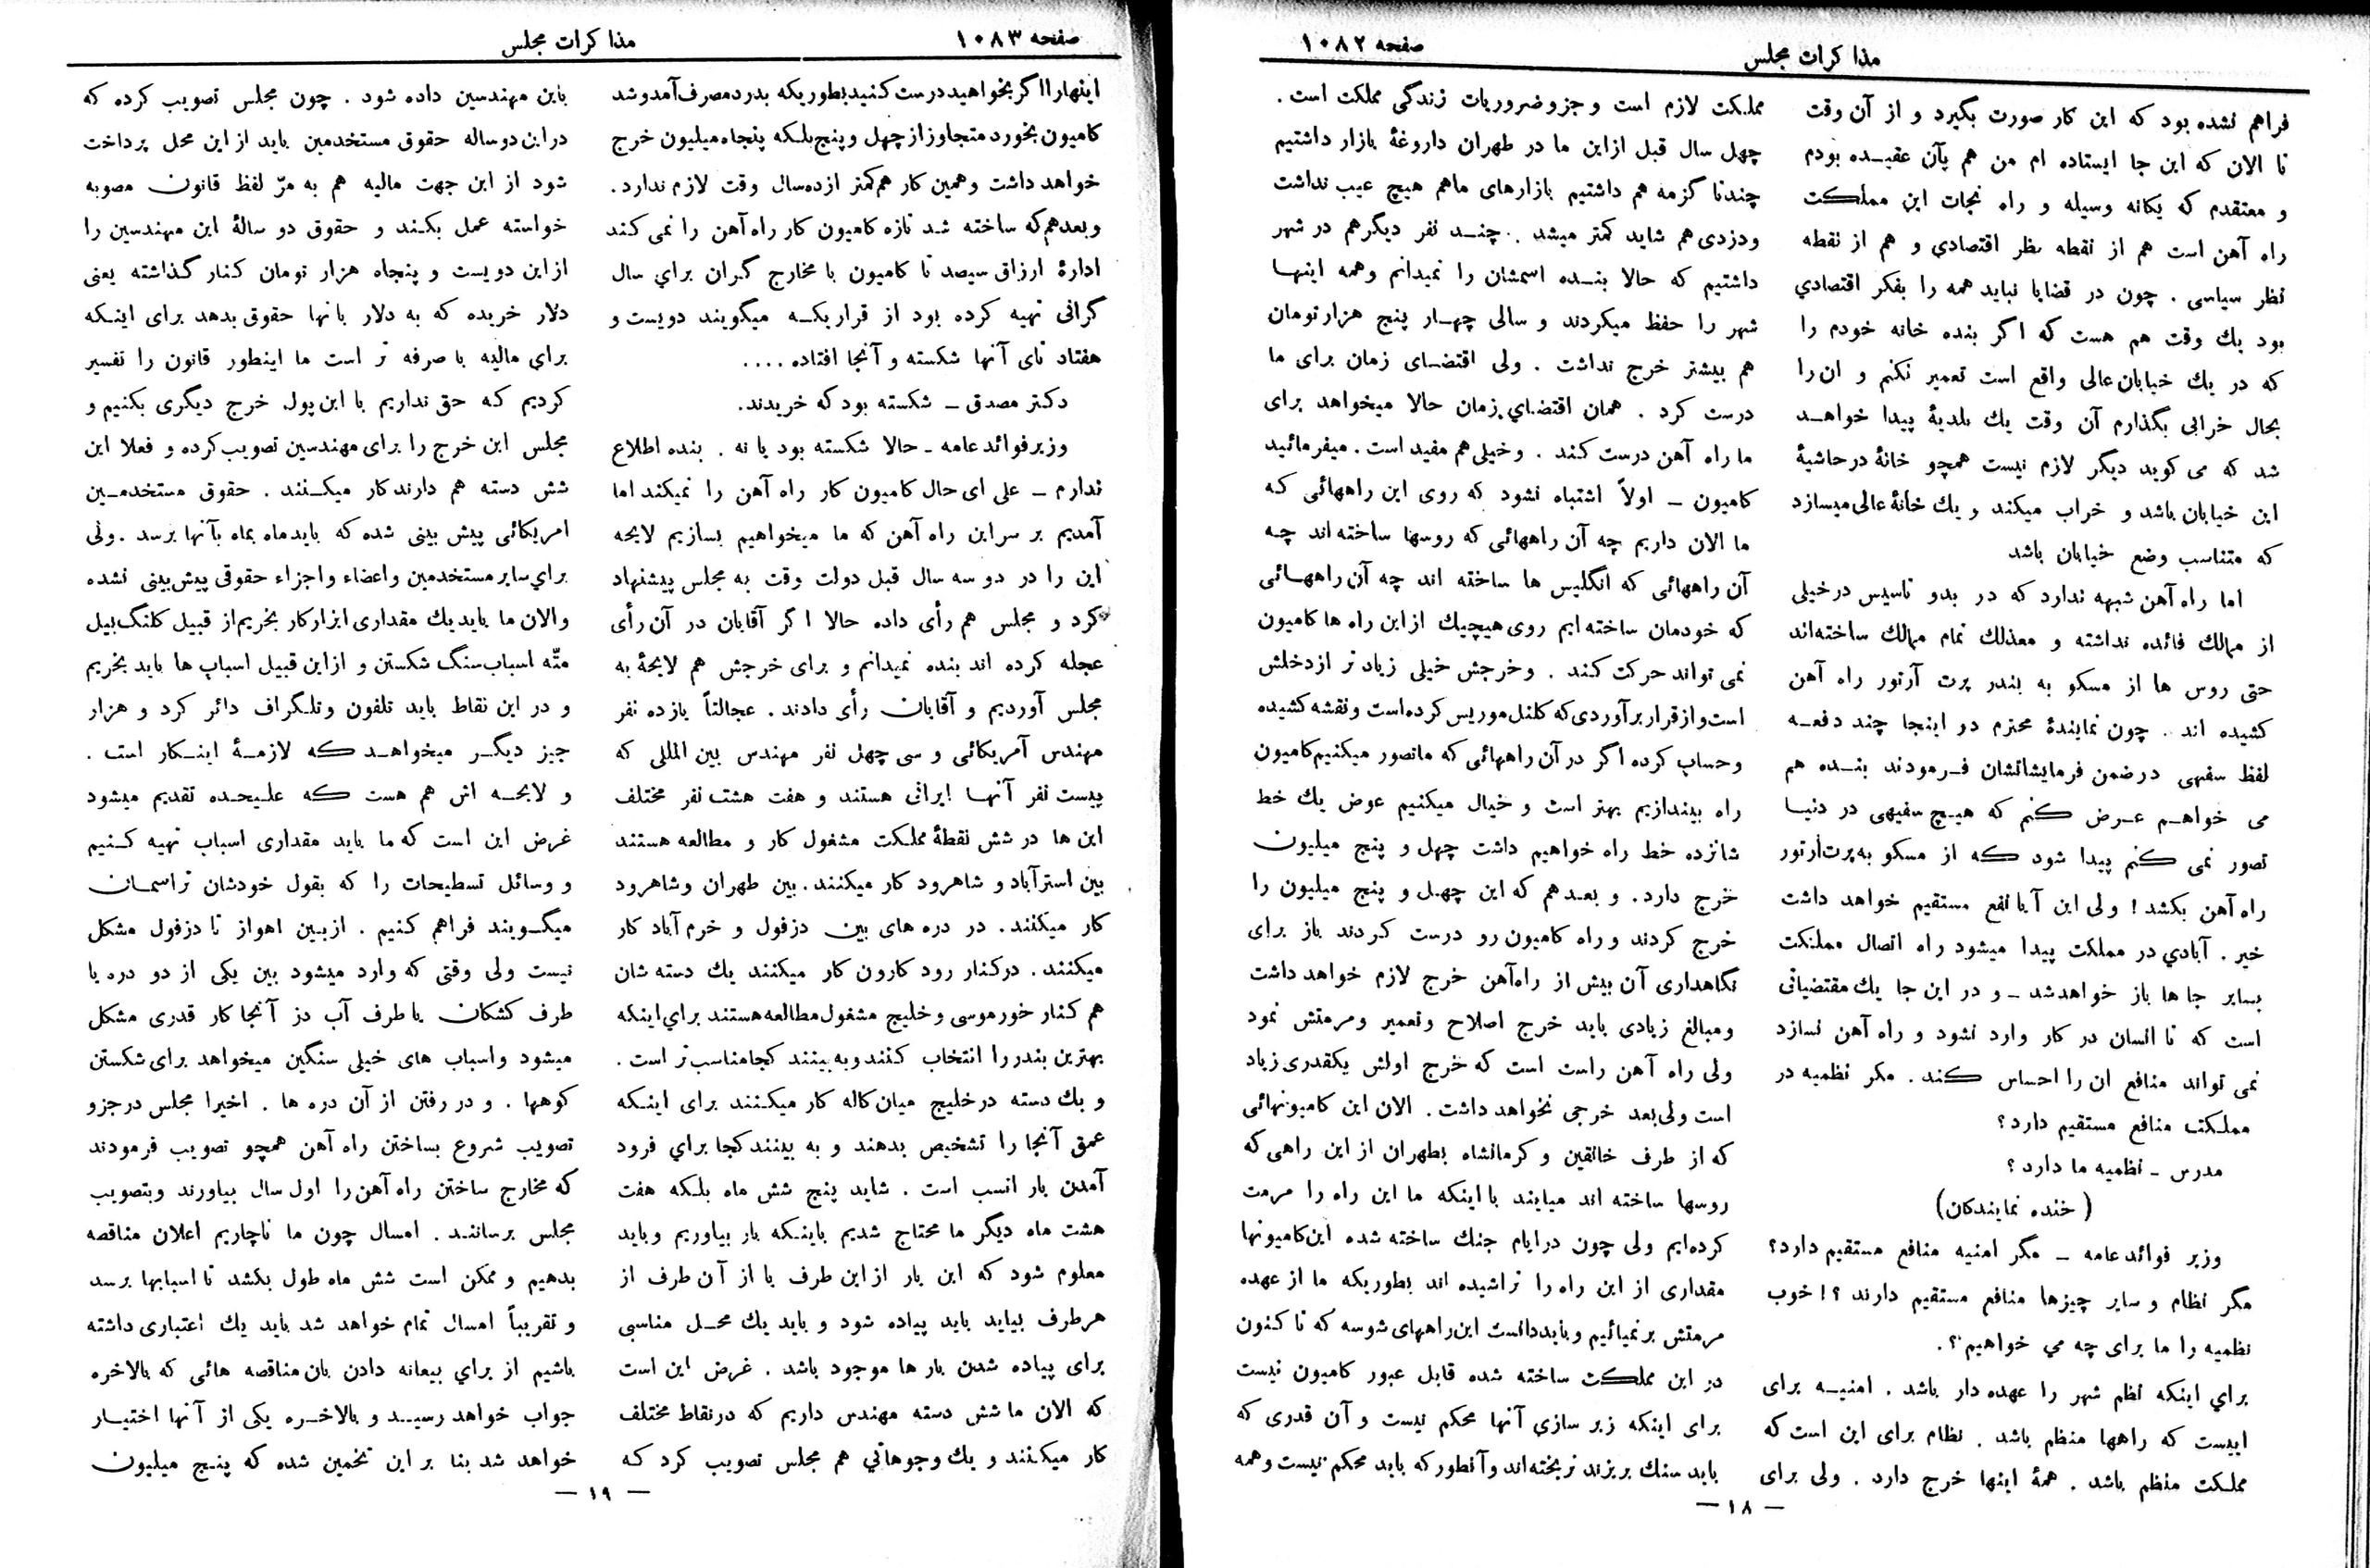 صفحه ۱۰۸۲
مذاکرات مجلس
فراهم نشده بود که این کار صورت بگیرد و از آن وقت
تا الان که این جا ایستاده ام من هم بآن عقیده بودم
و معتقدم که یکانه وسیله و راه نجات این مملکت
راه آهن است هم از نقطه نظر اقتصادی و هم از نقطه
نظر سیاسی . چون در قضایا نباید همه را بفکر اقتصادی
بود یك وقت هم هست که اگر بنده خانه خودم را
که در یك خیابان عالی واقع است تعمیر نکنم و ان را
بحال خرابی بگذارم آن وقت یك بلدیهٔ پیدا خواهد
شد که می کوید دیگر لازم نیست همچو خانهٔ در حاشیهٔ
این خیابان باشد و خراب میکند و یك خانهٔ عالی میسازد
که متناسب وضع خیابان باشد
اما راه آهن شبهه ندارد که در بدو تاسیس در خیلی
از ممالك فائده نداشته و معذلك تمام ممالك ساخته‌اند
حتی روس ها از مسکو به بندر پرت آرتور راه آهن
کشیده اند . چون نمایندهٔ محترم دو اینجا چند دفعه
لفظ سفهی در ضمن فرمایشاتشان فرمودند بنده هم
می خواهم عرض کنم که هیچ سفیهی در دنیا
تصور نمی کنم پیدا شود که از مسکو به پرت‌ارتور
راه آهن بکشد ! ولی این آیا نفع مستقیم خواهد داشت
خیر . آبادي در مملکت پیدا میشود راه اتصال مملکت
بسایر جا ها باز خواهد شد ـ و در این جا یك مقتضیاتی
است که تا انسان در کار وارد نشود و راه آهن نسازد
نمی تواند منافع ان را احساس کند . مکر نظمیه در
مملکت منافع مستقیم دارد ؟
مدرس ـ نظمیه ما دارد ؟
( خنده نمایندکان )
وزیر فوائد عامه ـ مگر امنیه منافع مستقیم دارد؟
مگر نظام و سایر چیزها منافع مستقیم دارند ؟ ! خوب
نظمیه را ما برای چه می خواهیم ؟ .
براي اینکه نظم شهر را عهده دار باشد . امنیه برای
اینست که راهها منظم باشد . نظام برای این است که
مملکت منظم باشد . همهٔ اینها خرج دارد . ولی برای
مملکت لازم است و جزو ضروریات زندگی مملکت است .
چهل سال قبل ازاین ما در طهران داروغهٔ بازار داشتیم
چندتا گزمه هم داشتیم بازارهای ماهم هیچ عیب نداشت
ودزدی هم شاید کمتر میشد . چند نفر دیگرهم در شهر
داشتیم که حالا بنده اسمشان را نمیدانم وهمه اینها
شهر را حفظ میکردند و سالی چهار پنج هزار تومان
هم بیشتر خرج نداشت . ولی اقتضای زمان برای ما
درست کرد . همان اقتضاي زمان حالا میخواهد برای
ما راه آهن درست کند . و خیلی هم مفید است . میفرمائید
کامیون ـ اولاً اشتباه نشود که روی این راههائی که
ما الان داریم چه آن راههائی که روسها ساخته اند چه
آن راههائی که انگلیس ها ساخته اند چه آن راههائی
که خودمان ساخته ایم روی هیچیك ازاین راه ها کامیون
نمی تواند حرکت کند . و خرجش خیلی زیاد تر ازدخلش
است و از قرار برآوردی که کلنل موریس کرده‌است و نقشه کشیده
وحساب کرده اگر در آن راههائی که مانصور میکنیم کامیون
راه بیندازیم بهتر است و خیال میکنیم عوض یك خط
شانزده خط راه خواهیم داشت چهل و پنج میلیون
خرج دارد . و بعد هم که این چهل و پنج میلیون را
خرج کردند و راه کامیون رو درست کردند باز برای
نگاهداری آن بیش از راه‌آهن خرج لازم خواهد داشت
ومبالغ زیادی باید خرج اصلاح وتعمیر ومرمتش نمود
ولی راه آهن راست است که خرج اولش یکقدری زیاد
است ولی بعد خرجی نخواهد داشت . الان این کامیونهائی
که از طرف خانقین و کرمانشاه بطهران از این راهی که
روسها ساخته اند میایند با اینکه ما این راه را مرمت
کرده‌ایم ولی چون درایام جنك ساخته شده این کامیونها
مقداری از این راه را تراشیده اند بطوریکه ما از عهده
مرمتش برنمیائیم و باید دانست این راههای شوسه که تا کنون
در این مملکت ساخته شده قابل عبور کامیون نیست
برای اینکه زیر سازی آنها محکم نیست و آن قدری که
باید سنك بریزند نریخته‌اند و آنطور که باید محکم نیست و همه
— ۱۸ —
صفحه ۱۰۸۳
مذاکرات مجلس
اینهارا اگر بخواهید درست کنید بطوریکه بدرد مصرف آمدو شد
کامیون بخورد متجاوز از چهل و پنج بلکه پنجاه میلیون خرج
خواهد داشت و همین کار هم کمتر ازده سال وقت لازم ندارد .
و بعد هم که ساخته شد تازه کامیون کار راه آهن را نمی کند
ادارهٔ ارزاق سیصد تا کامیون با مخارج گران براي سال
گرانی تهیه کرده بود از قراریکه میگویند دویست و
هفتاد تای آنها شکسته و آنجا افتاده ....
دکتر مصدق ـ شکسته بود که خریدند.
وزیرفوائد عامه ـ حالا شکسته بود یا نه . بنده اطلاع
ندارم ـ علی ای حال کامیون کار راه آهن را نمیکند اما
آمدیم بر سر این راه آهن که ما میخواهیم بسازیم لایحه
این را در دو سه سال قبل دولت وقت به مجلس پیشنهاد
کرد و مجلس هم رأی داده حالا اگر آقایان در آن رأی
عجله کرده اند بنده نمیدانم و برای خرجش هم لایحهٔ به
مجلس آوردیم و آقایان رأی دادند . عجالتاً یازده نفر
مهندس آمریکائی و سی چهل نفر مهندس بین المللی که
بیست نفر آنها ایرانی هستند و هفت هشت نفر مختلف
این ها در شش نقطهٔ مملکت مشغول کار و مطالعه هستند
بین استرآباد و شاهرود کار میکنند . بین طهران وشاهرود
کار میکنند . در دره های بین دزفول و خرم آباد کار
میکنند . درکنار رود کارون کار میکنند یك دسته شان
هم کنار خورموسی و خلیج مشغول مطالعه هستند برای اینکه
بهترین بندر را انتخاب کنند و به بینند کجا مناسب تر است .
و یك دسته در خلیج میان کاله کار میکنند برای اینکه
عمق آنجا را تشخیص بدهند و به بینند کجا براي فرود
آمدن بار انسب است . شاید پنج شش ماه بلکه هفت
هشت ماه دیگر ما محتاج شدیم باینکه بار بیاوریم و باید
معلوم شود که این بار از این طرف یا از آن طرف از
هرطرف بیاید باید پیاده شود و باید یك محل مناسبی
برای پیاده شدن بار ها موجود باشد . غرض این است
که الان ما شش دسته مهندس داریم که درنقاط مختلف
کار میکنند و یك وجوهاتي هم مجلس تصویب کرد که
باین مهندسین داده شود . چون مجلس تصویب کرده که
دراین دوساله حقوق مستخدمین باید از این محل پرداخت
شود از این جهت مالیه هم به مرّ لفظ قانون مصوبه
خواسته عمل بکند و حقوق دو سالهٔ این مهندسین را
از این دویست و پنجاه هزار تومان کنار گذاشته یعنی
دلار خریده که به دلار بانها حقوق بدهد برای اینکه
برای مالیه با صرفه تر است ما اینطور قانون را تفسیر
کردیم که حق نداریم با این پول خرج دیگری بکنیم و
مجلس این خرج را برای مهندسین تصویب کرده و فعلا این
شش دسته هم دارند کار میکنند . حقوق مستخدمین
امریکائی پیش بینی شده که باید ماه بماه بآنها برسد . ولی
براي سایر مستخدمین و اعضاء و اجزاء حقوقی پیش‌بینی نشده
والان ما باید یك مقداری ابزار کار بخریم از قبیل کلنگ بیل
متّه اسباب سنگ شکستن و از این قبیل اسباب ها باید بخریم
و در این نقاط باید تلفون وتلگراف دائر کرد و هزار
چیز دیگر میخواهد که لازمهٔ اینکار است .
و لایحه اش هم هست که علیحده تقدیم میشود
غرض این است که ما باید مقداری اسباب تهیه کنیم
و وسائل تسطیحات را که بقول خودشان تراسمان
میگویند فراهم کنیم . از بین اهواز تا دزفول مشکل
نیست ولی وقتی که وارد میشود بین یکی از دو دره یا
طرف کشکان یا طرف آب دز آنجا کار قدری مشکل
میشود و اسباب های خیلی سنگین میخواهد برای شکستن
کوهها . و در رفتن از آن دره ها . اخیرا مجلس در جزو
تصویب شروع بساختن راه آهن همچو تصویب فرمودند
که مخارج ساختن راه آهن را اول سال بیاورند وبتصویب
مجلس برسانند . امسال چون ما ناچاریم اعلان مناقصه
بدهیم و ممکن است شش ماه طول بکشد تا اسبابها برسد
و تقریباً امسال تمام خواهد شد باید یك اعتباری داشته
باشیم از براي بیعانه دادن بان مناقصه هائی که بالاخره
جواب خواهد رسید و بالاخره یکی از آنها اختیار
خواهد شد بنا بر این تخمین شده که پنج میلیون
— ۱۹ —